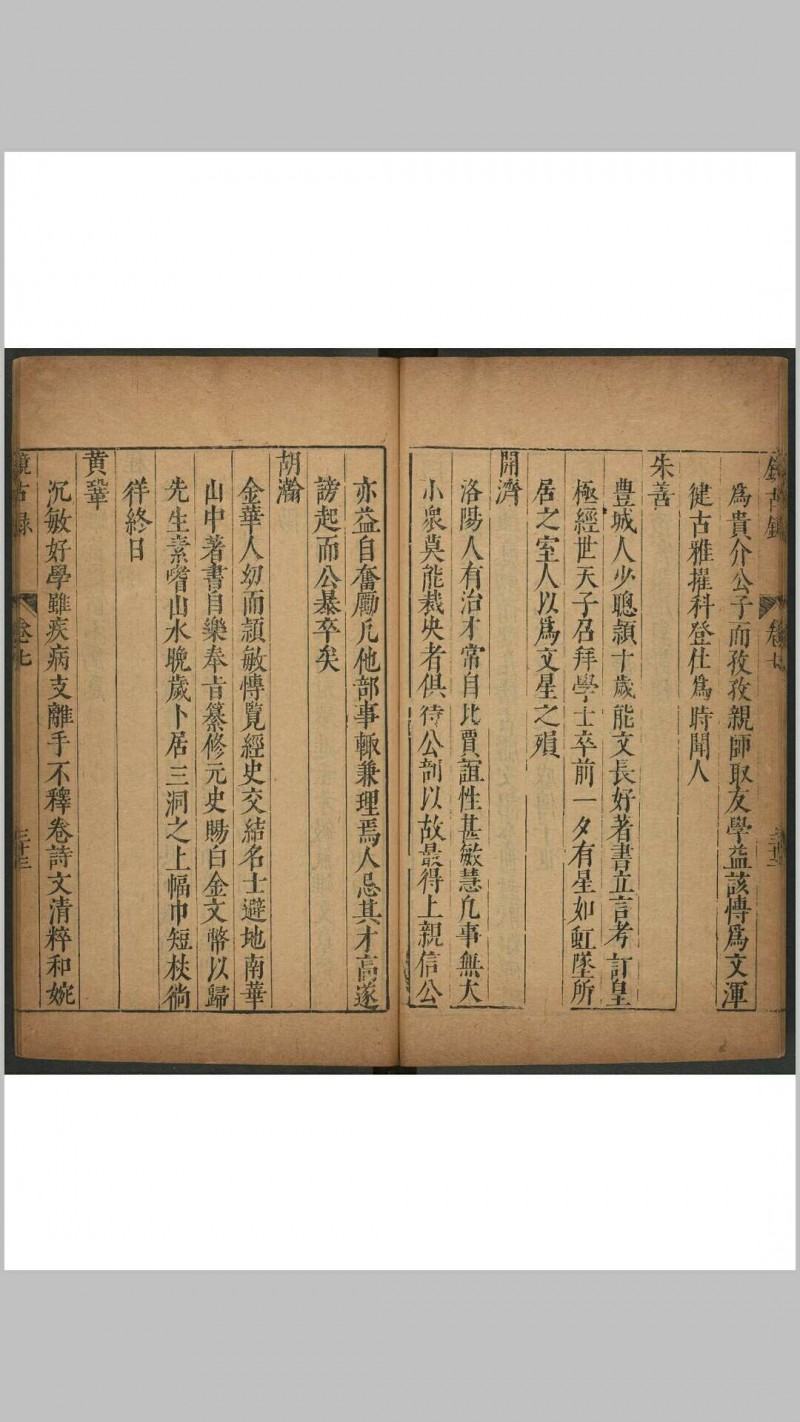 為貴介公子而孜孜親師取友學益該慱為文渾
健古雅擢科登仕為時聞人
朱善
豊城人少聰頴十歲能文長好著書立言考訂皇
極經世天子召拜學士卒前一夕有星如虹墜所
居之室人以為文星之殞
開濟
洛陽人有治才常自比賈誼性甚敏慧凡事無大
小衆莫能裁决者俱待公剖以故最得上親信公
亦益自奮勵凡他部事輙兼理焉人忌其才高遂
謗起而公暴卒矣
胡瀚
金華人幼而頴敏慱覽經史交結名士避地南華
山中著書自樂奉旨纂修元史賜白金文幣以歸
先生素嗜山水晩歲卜居三洞之上幅巾短杖徜
徉終日
黄鞏
沉敏好學雖疾病支離手不釋卷詩文清粹和婉
鏡古録 卷七